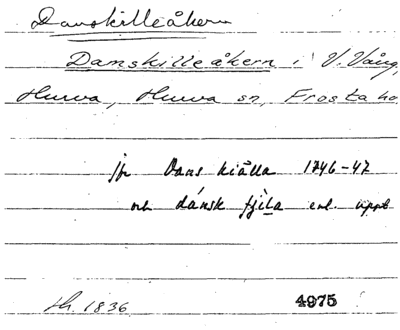 Danskilleåkern
Danskilleåkern i V. Vång,
Hurva, Hurva sn, Frosta hd
jfr Dans kiälla 1746-47
och dánsk fjila enl. uppt
th. 1836 4975